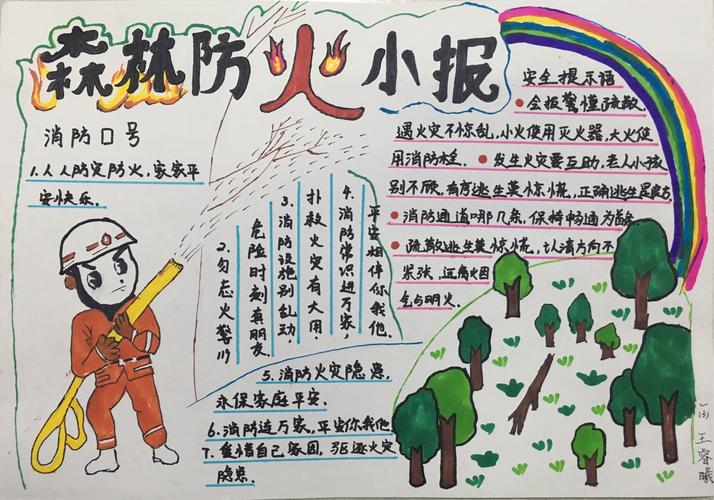 森林防火小报
消防口号
1.人人防灾防火,家家平
安快乐.
2.勿忘火警
危险时刻真朋友.
3.消防设施别乱动,
扑救火灾有大用.
4.消防常识进万家,
平安相伴你我他.
5.消防火灾隐患,
永保家庭平安.
6.消防进万家,平安你我他
7.自己家园,驱逐火灾
隐患.
安全提示语
●会报警懂疏散
遇火灾不惊乱,小火使用灭火器,大火使
用消防栓.●发生火灾要互助,老人小孩
别不顾,有序逃生莫惊慌,正确逃生
●消防通道哪几条,保持畅通为
●疏散逃生莫惊慌,认清方向不
紧张,远离火因
与明火.
一(3)
王睿曦